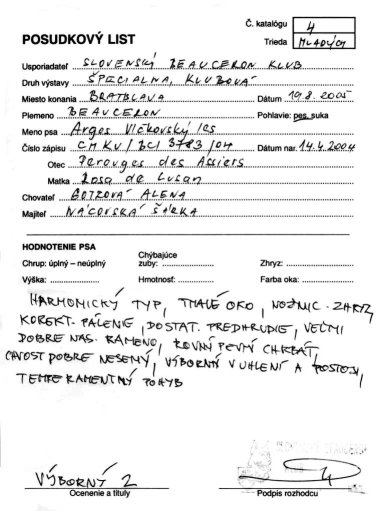 Č. katalógu 4
POSUDKOVÝ LIST
Trieda MLADÝCH
Usporiadateľ SLOVENSKÝ BEAUCERON KLUB
Druh výstavy ŠPECIALNA, KLUBOVÁ
Miesto konania BRATSLAVA Dátum 19.8.2005
Plemeno BEAUCERON Pohlavie: pes, suka
Meno psa Argos Vlčkovský les
Číslo zápisu CMKU/BCI 3783/04 Dátum nar. 14.4.2004
Otec Perouges des Assiers
Matka Rosa de Lusan
Chovateľ GOTZOVÁ ALENA
Majiteľ NÁCOVSKÁ ŠÁRKA
HODNOTENIE PSA
Chrup: úplný – neúplný Chýbajúce zuby: Zhryz:
Výška: Hmotnosť: Farba oka:
HARMONICKÝ TYP, TMAVÉ OKO, NOŽNIC. ZHRYZ
KOREKT. PÁLENIE, DOSTAT. PREDHRUDIE, VEĽMI
DOBRE NAS. RAMENO, ROVNÝ PEVNÝ CHRBÁT,
CHVOST DOBRE NESENÝ, VÝBORNÝ V UHLENÍ A POSTOJI,
TEMPERAMENTNÝ POHYB
VÝBORNÝ 2
Ocenenie a tituly Podpis rozhodcu